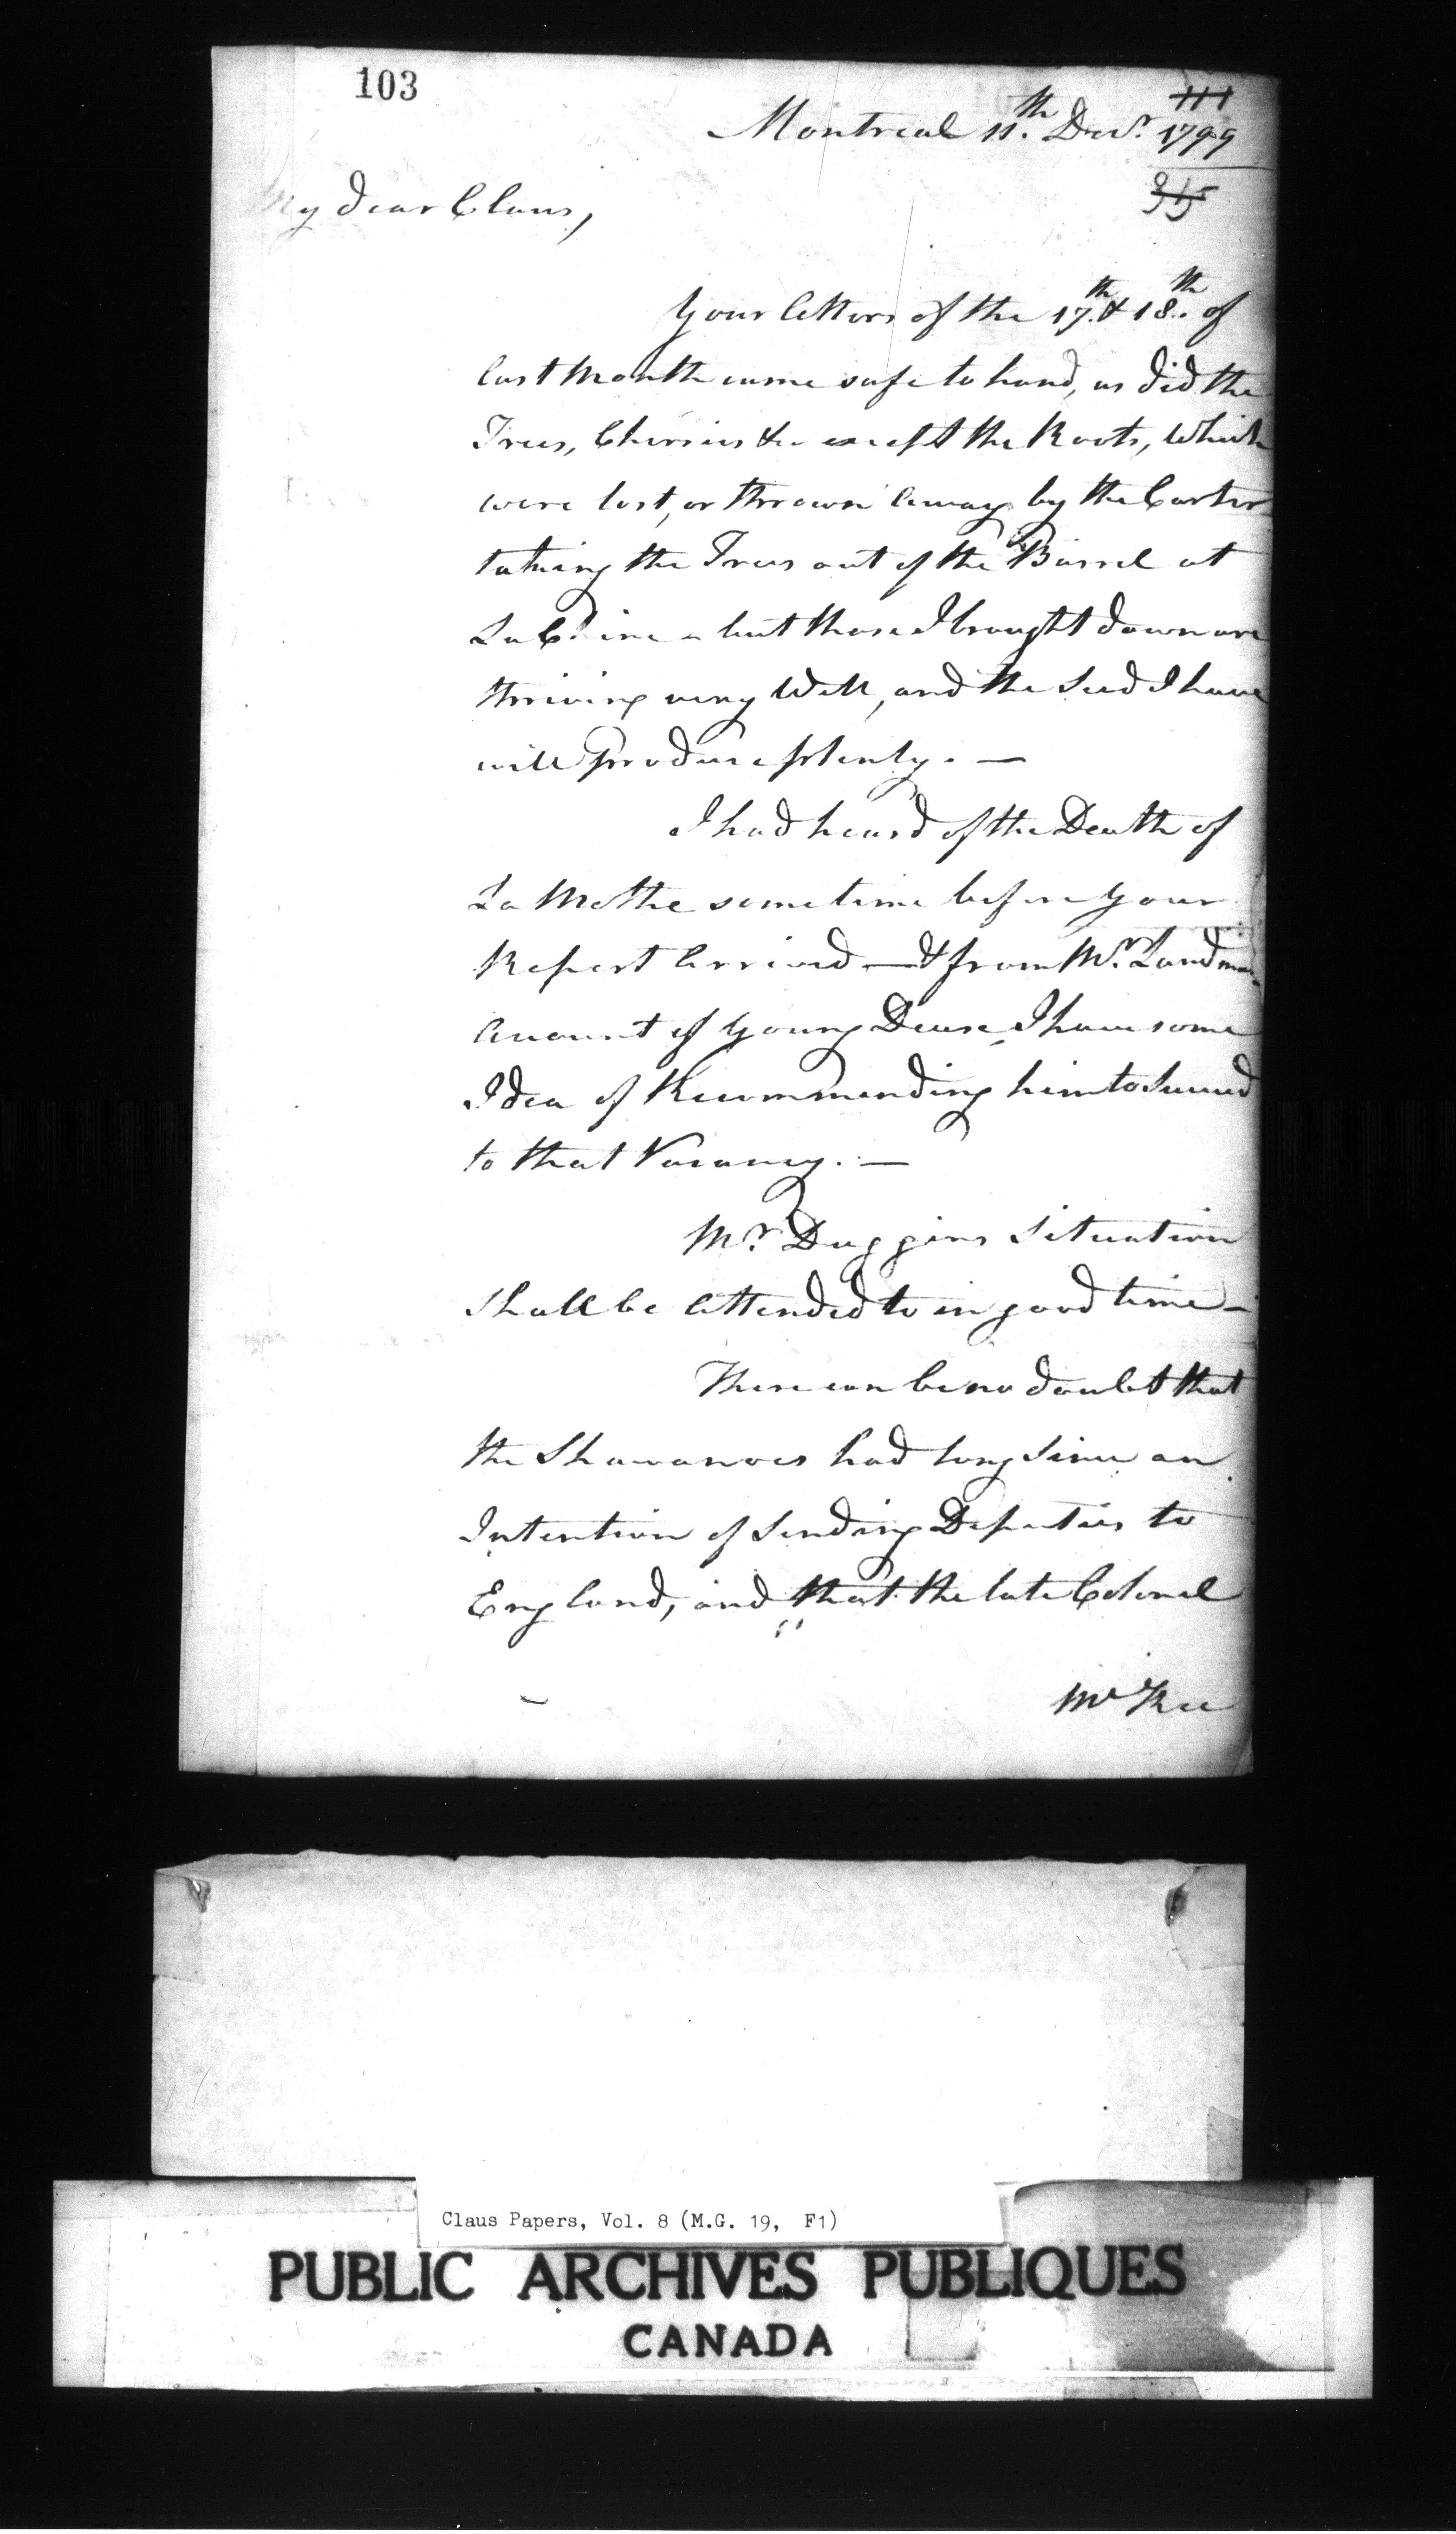 103
111
Montreal 11.th Decr. 1799
315
My dear Claus,
Your letters of the 17.th & 18.th of
last Month came safe to hand, as did the
Trees, Cherries &c except the Roots, which
were lost, or thrown away by the Carter
taking the Trees out of the Barrel at
La Chine - but those I brought down are
thriving very Well, and the Seed I have
will produce plenty. —
I had heard of the Death of
La Mothe some time before your
Report arrived — & from Mr. Landman
account of young Dease, I have some
Idea of Recommending him to Succeed
to that Vacancy. —
Mr. Duggins Situation
Shall be attended to in good time —
There can be no doubt that
the Shawanoes had long Since an
Intention of Sending Deputies to
England, and that the late Colonel
McKee
Claus Papers, Vol. 8 (M.G. 19, F1)
PUBLIC ARCHIVES PUBLIQUES
CANADA